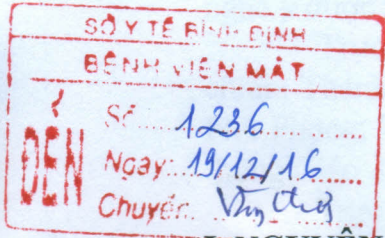 SỞ Y TẾ BÌNH ĐỊNH
BỆNH VIỆN MẮT
ĐẾN
Số: 1236
Ngày: 19/12/16
Chuyển: